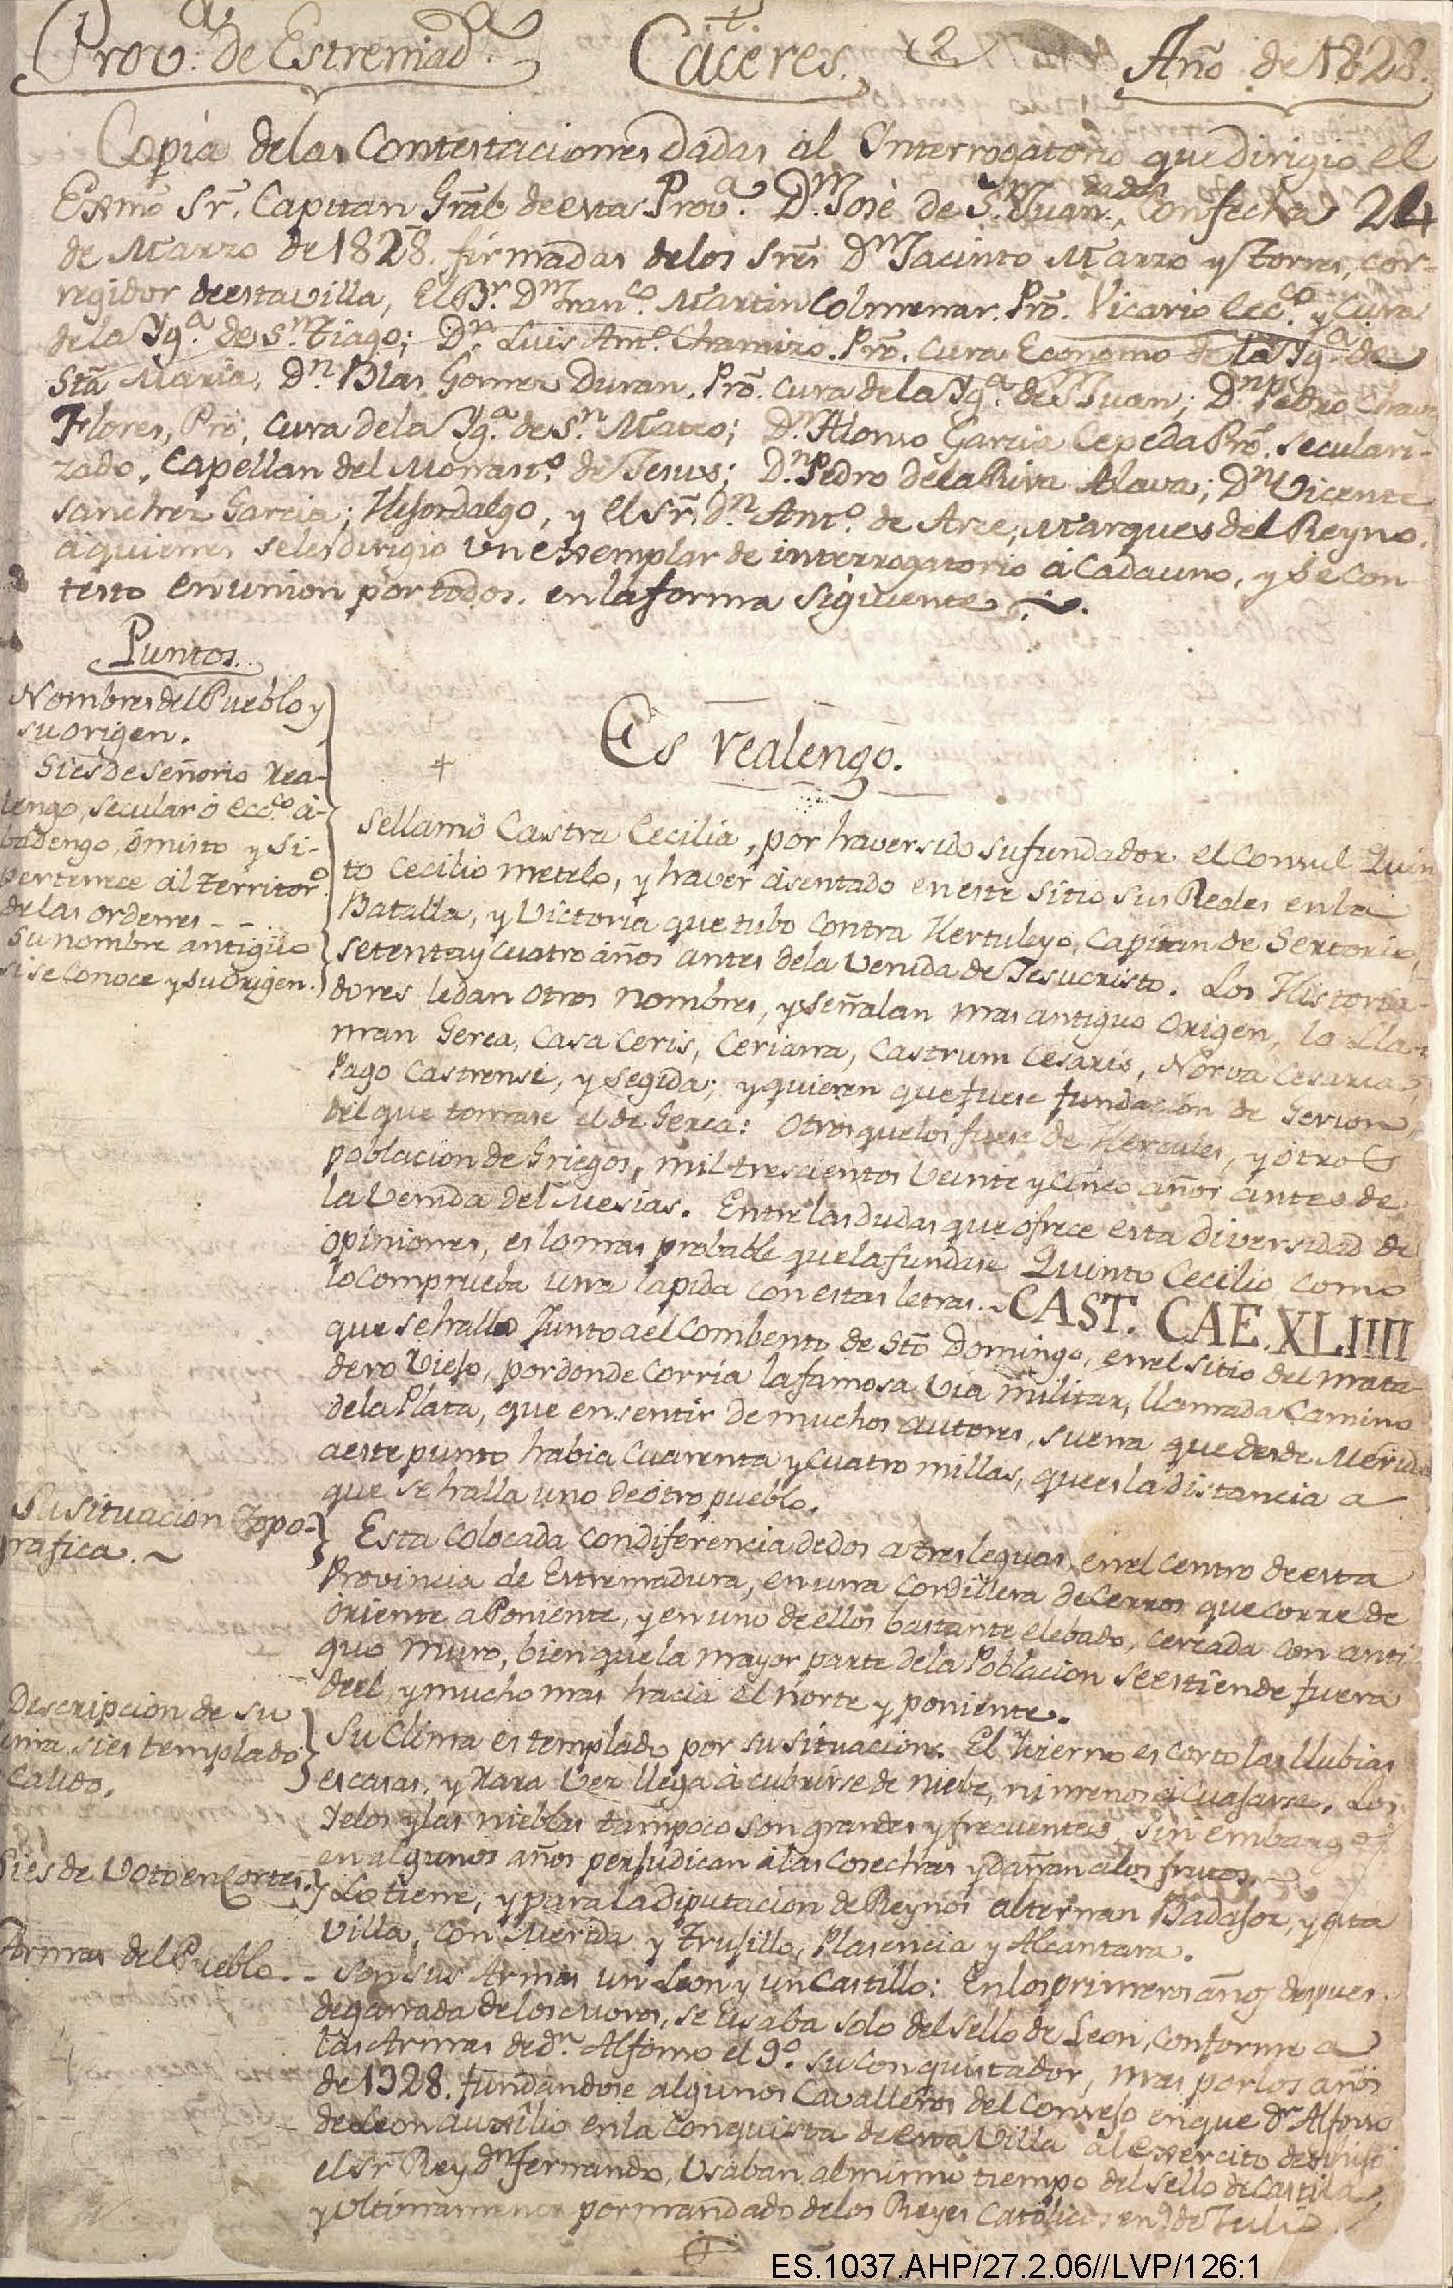 Prov.ª de Estremad.ª Cáceres. 2 Año de 1828.
Copia delas Contestaciones dadas al Ynterrogatorio que dirigió el
Exmo Sr. Capitan Gral de estas Prov.ª Dn. José de Sn Juan, con fecha 24
de Marzo de 1828. firmadas delos Sres Dn Jacinto Marzo y Torres, cor-
regidor de esta villa, El Br. Dn Franco Martin Colmenar. Pro. Vicario Ecco. y Cura
dela Yg.ª de Sn. Tiago; Dn. Luis Anto. Chamizo. Pro. Cura Economo de la Yg.ª de
Sta Maria, Dn. Blas Gomez Duran. Pro. Cura dela Yg.ª de Sn Juan; Dn. Pedro
Flores, Pro, Cura dela Yg.ª de Sn. Mateo; Dn. Alonso Garcia Cepeda Pro. seculari-
zado, Capellan del Monasto. de Jesus; Dn. Pedro dela Riva Alava; Dn Vicente
Sanchez Garcia; Hijosdalgo, y el Sr. Dn. Anto. de Arce, Marques del Reyno.
aquienes seles dirigio un exemplar de interrogatorio á cada uno, y se con
testo en union por todos. en la forma siguiente
Puntos.
Nombres del Pueblo y
su origen.
Si es de señorio Rea-
lengo, secular ó ecco. á-
badengo, ó misto y si-
pertenece al territoro.
delas ordenes - -
Su nombre antiguo
si se conoce y su origen.
Es realengo.
Sellamó Castra Cecilia, por haver sido su fundador el Consul Quin
to Cecilio metelo, y haver asentado en este sitio sus Reales en la
Batalla, y Victoria que tubo contra Hertuleyo, Capitan de Sertorio,
setenta y cuatro años antes dela Venida de Jesucristo. Los Historia-
dores ledan otros nombres, y señalan mas antiguo origen, la lla-
man Gerea, Casa Ceris, Ceriana, Castrum Cesaris, Norva Cesarea,
Pago Castrense, y Segida; y quieren que fuese fundacion de Gerion,
del que tomase el de Gerea: Otros que los fuese de Hercules, y otros
poblacion de Griegos, mil trescientos veinte y cinco años antes de
la Venida del Mesias. Entre las dudas que ofrece esta diversidad de
opiniones, es lo mas probable que la fundase Quinto Cecilio, como
lo comprueba una lapida con estas letras. CAST. CAE. XLIIII
que se halla Junto a el Combento de Sto Domingo, en el sitio del mata-
dero Viejo, por donde corria la famosa via militar, llamada Camino
dela Plata, que en sentir de muchos autores, suena que desde Merida
a este punto habia cuarenta y cuatro millas, que es la distancia a
que se halla uno de otro pueblo.
Su situacion Topo-
grafica.
Esta colocada con diferencia de dos a tres leguas, en el centro de esta
Provincia de Estremadura, en una cordillera de Cerros que corre de
Oriente a Poniente, y en uno de ellos bastante elebado, cercada con anti
guo muro, bien que la mayor parte dela Poblacion se estiende fuera
deel, y mucho mas hacia el norte y poniente.
Descripcion de su
clima si es templado
calido.
Su Clima es templado por su situacion. El Yvierno es corto las llubias
escasas, y rara vez llega á cubrirse de niebe, ni menos á cuajarse. Los
Yelos y las nieblas tampoco son grandes y frecuentes, sin embargo
en algunos años perjudican alas cosechas y dañan alos frutos.
Si es de Voto en Cortes.
Lo tiene, y para la diputacion de Reynos alternan Badajoz, y esta
Villa, con Merida y Trujillo, Plasencia y Alcantara.
Armas del Pueblo. - -
Son sus Armas un Leon y un Castillo: En los primeros años despues
de ganada de los moros, se usaba solo del sello de Leon, conforme a
las Armas de dn. Alfonso el 9º. su conquistador, mas por los años
de 1328. fundandose algunos Cavalleros del Consejo en que dn Alfonso
de Leon auxilio en la conquista de esta Villa al exercito de
el Sr Rey dn Fernando, Usaban al mismo tiempo del sello de Castilla,
y ultimamente por mandado delos Reyes Catolicos en 9 de Julio
ES.1037.AHP/27.2.06//LVP/126:1